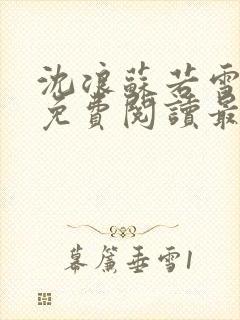 沈浪蘇若雪
免費閱讀最
幕簾垂雪1